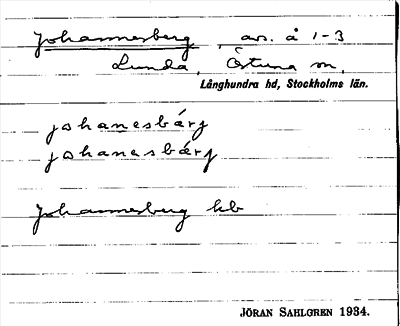 Johannesberg, av. å 1-3
Lunda, Östuna sn,
Långhundra hd, Stockholms län.
johanesbárj
johanesbárj
Johannesberg hb
JÖRAN SAHLGREN 1934.